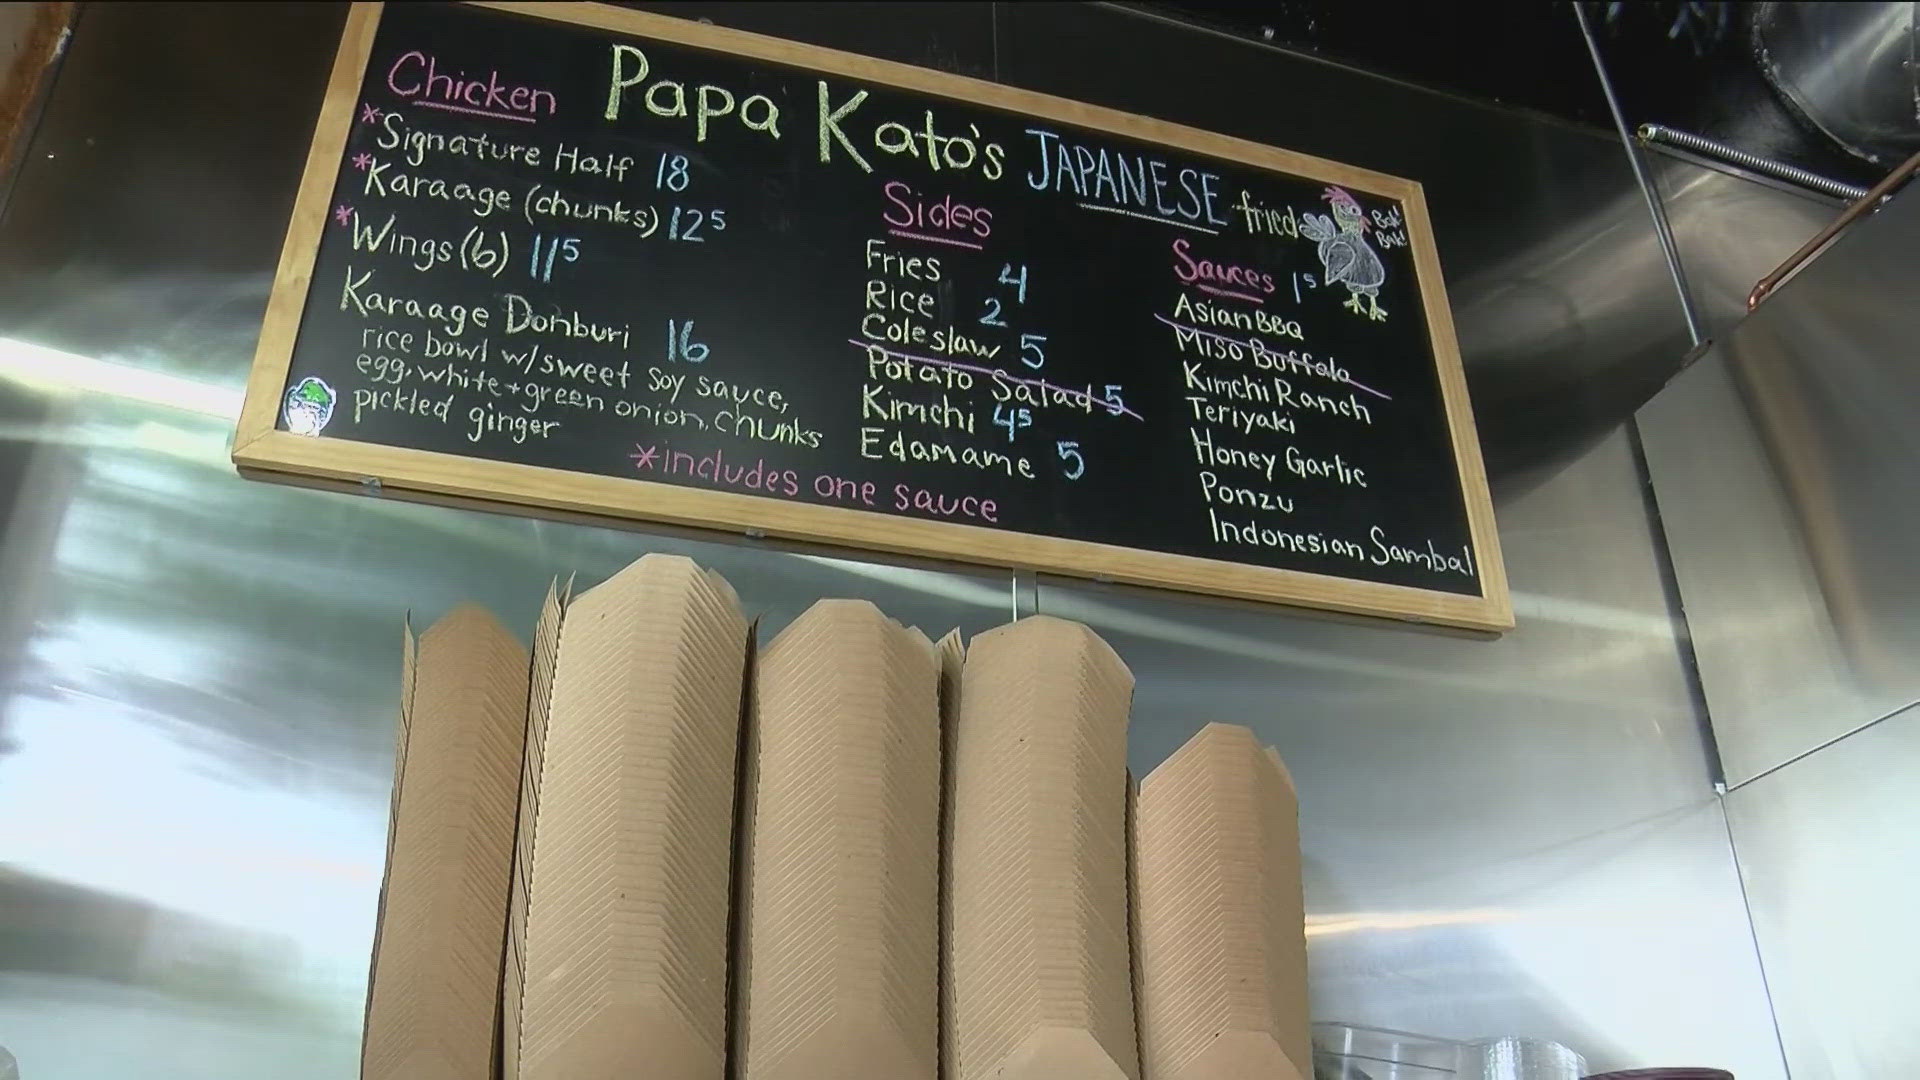 Papa Kato's JAPANESE fried
Bak!
Bak!
Chicken
*Signature Half 18
*Karaage (chunks) 12⁵
*Wings (6) 11⁵
Karaage Donburi 16
rice bowl w/sweet soy sauce,
egg, white + green onion, chunks
pickled ginger
*includes one sauce
Sides
Fries 4
Rice 2
Coleslaw 5
Potato Salad 5
Kimchi 4⁵
Edamame 5
Sauces 1⁵
Asian BBQ
Miso Buffalo
Kimchi Ranch
Teriyaki
Honey Garlic
Ponzu
Indonesian Sambal